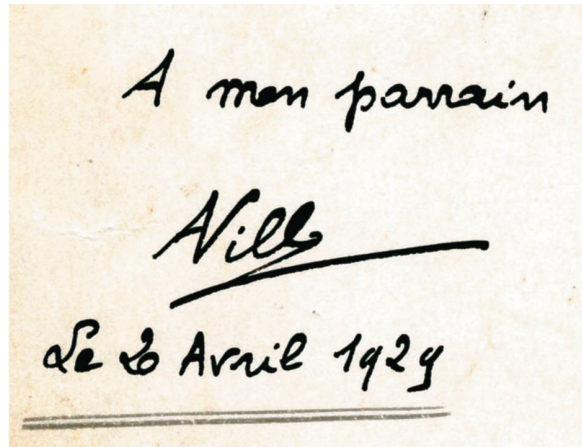 A mon parrain
Nill
Le 2 Avril 1929